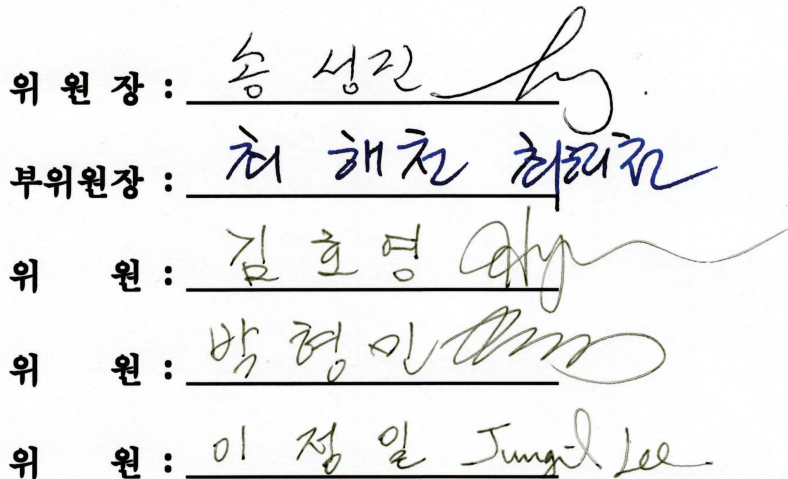 위 원 장 : 송 성진
부위원장 : 최 해천 최해천
위 원 : 김 호 영
위 원 : 박 형 민
위 원 : 이 정 일 Jungil Lee